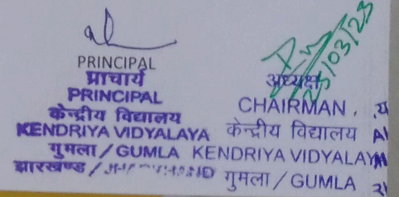 PRINCIPAL
प्राचार्य
PRINCIPAL
केन्द्रीय विद्यालय
KENDRIYA VIDYALAYA
गुमला / GUMLA
झारखण्ड / JHARKHAND
23/03/23
अध्यक्ष
CHAIRMAN
केन्द्रीय विद्यालय
KENDRIYA VIDYALAYA
गुमला / GUMLA